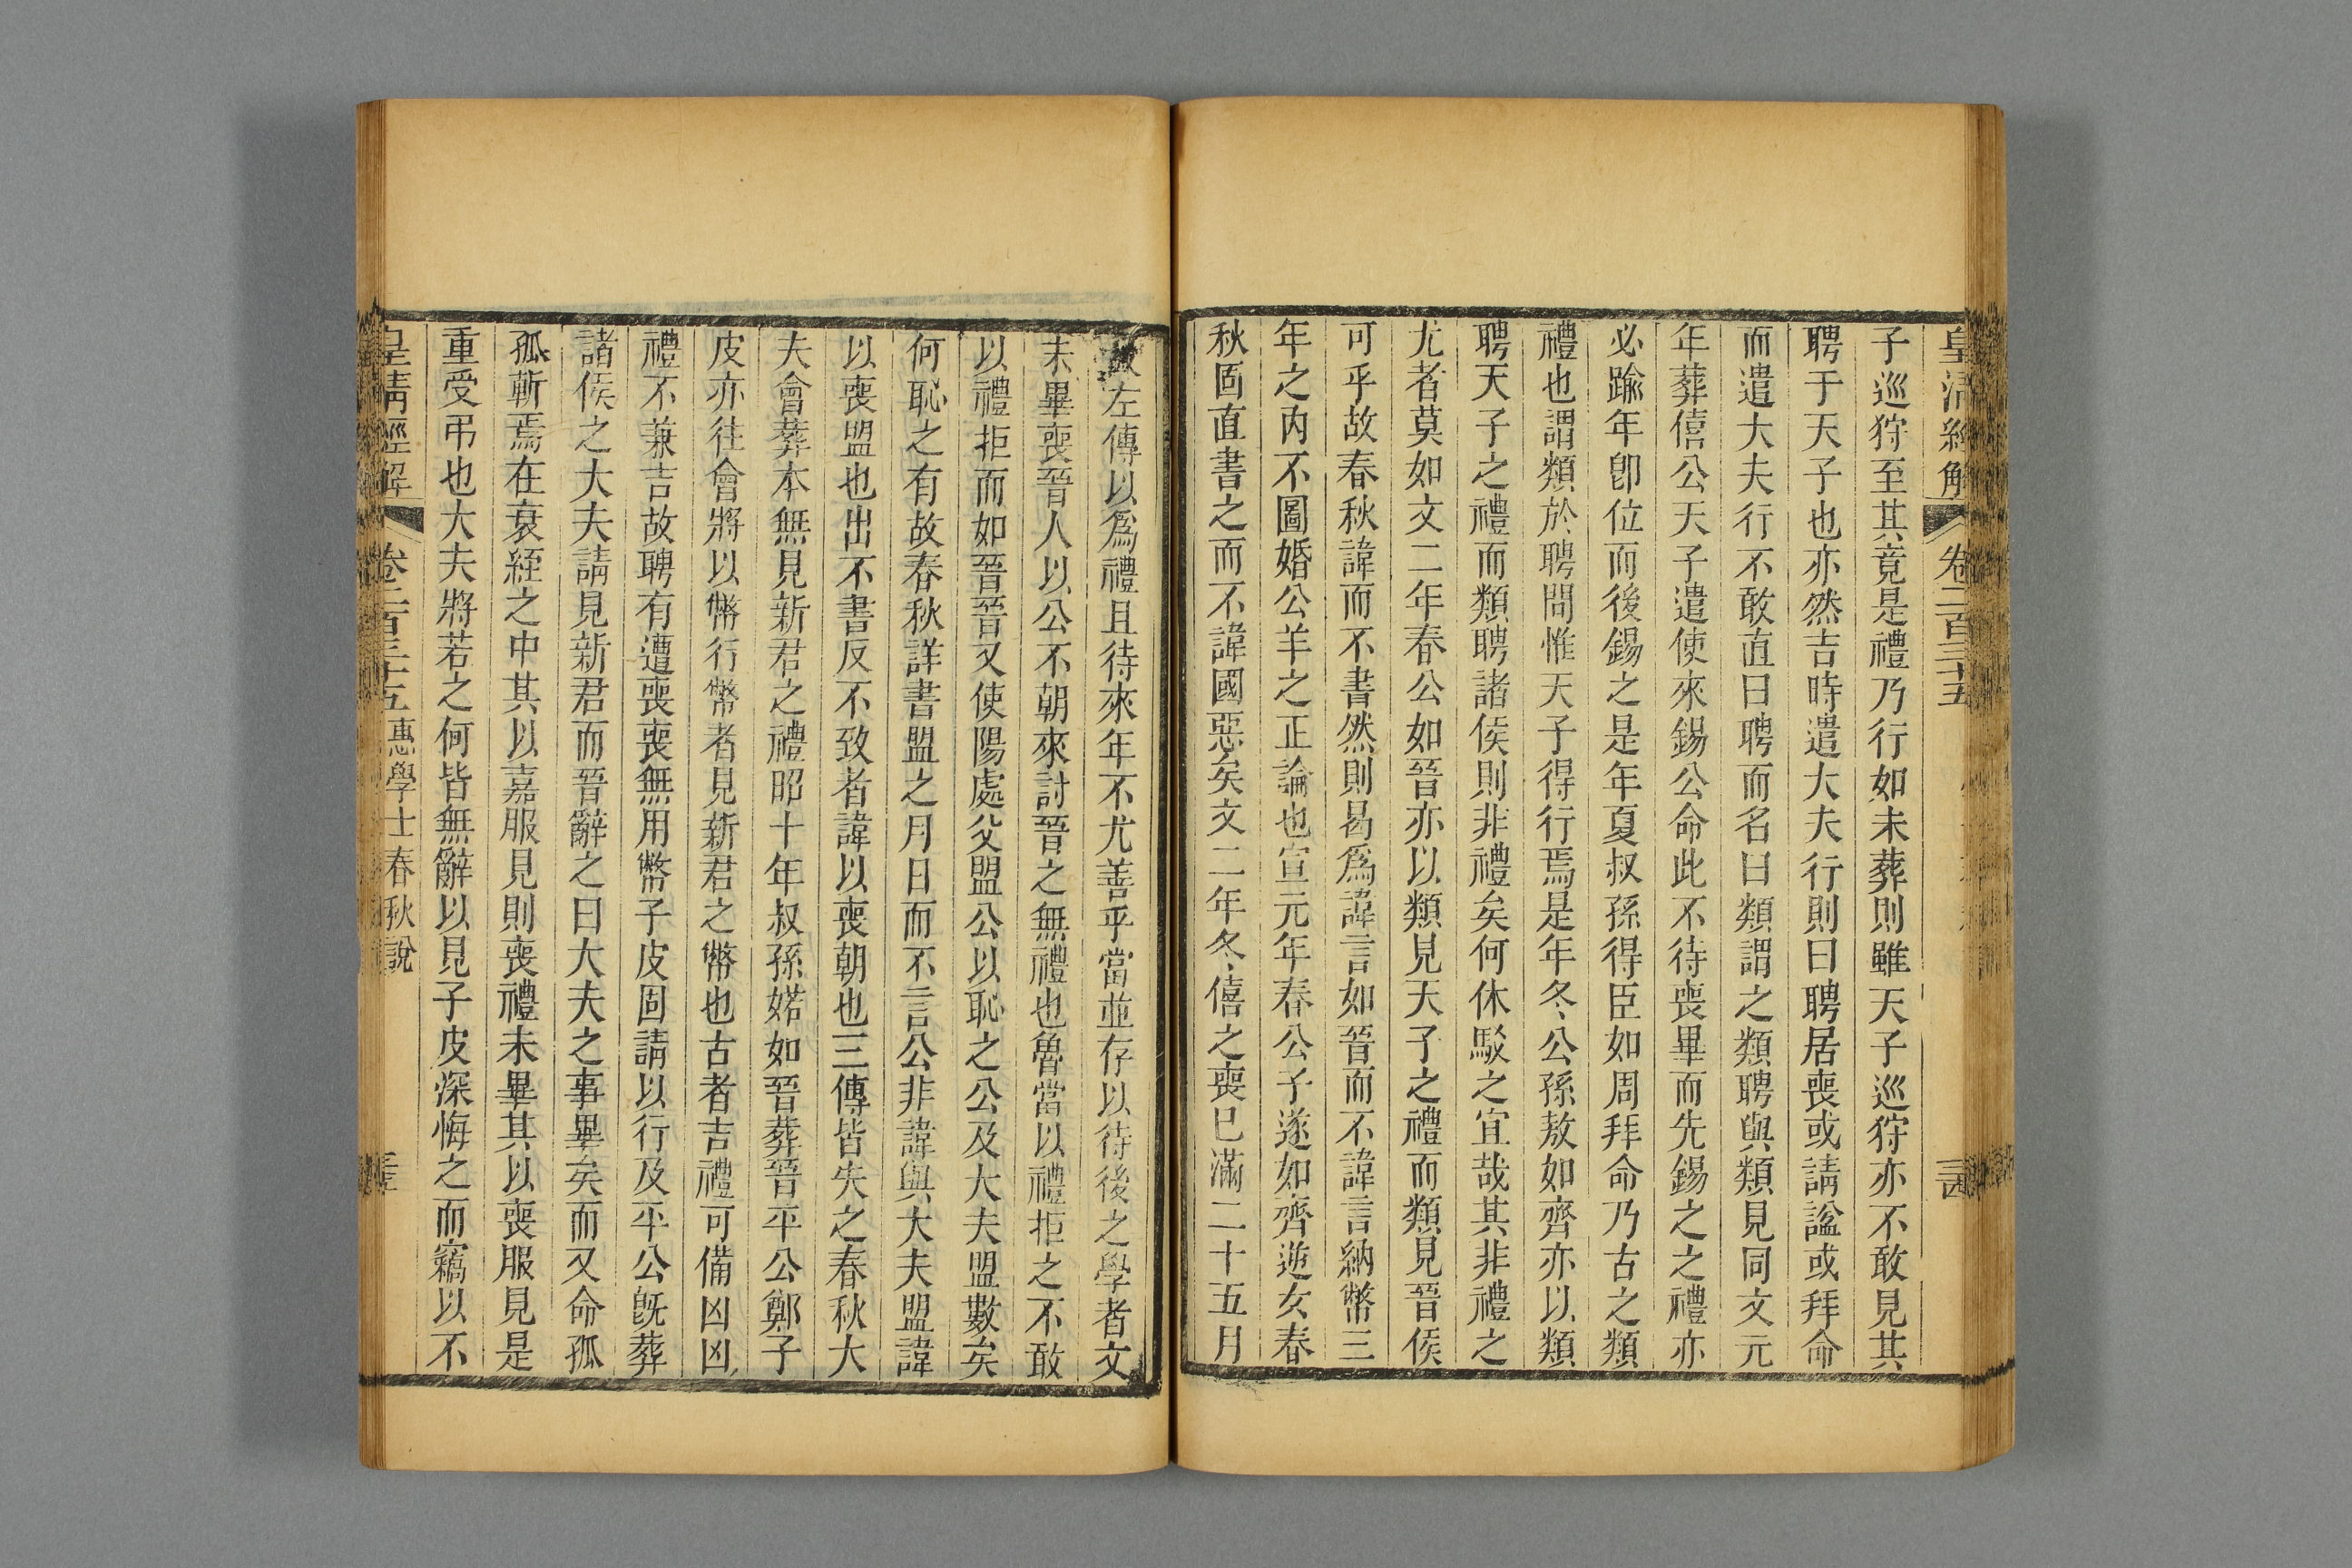 皇清經解 卷二百三十五
子巡狩至其竟是禮乃行如未葬則雖天子巡狩亦不敢見其
聘于天子也亦然吉時遣大夫行則曰聘居喪或請諡或拜命
而遣大夫行不敢直曰聘而名曰類謂之類聘與類見同文元
年葬僖公天子遣使來錫公命此不待喪畢而先錫之之禮亦
必踰年卽位而後錫之是年夏叔孫得臣如周拜命乃古之類
禮也謂類於聘問惟天子得行焉是年冬公孫敖如齊亦以類
聘天子之禮而類聘諸侯則非禮矣何休駁之宜哉其非禮之
尤者莫如文二年春公如晉亦以類見天子之禮而類見晉侯
可乎故春秋諱而不書然則曷爲諱言如晉而不諱言納幣三
年之內不圖婚公羊之正論也宣元年春公子遂如齊逆女春
秋固直書之而不諱國惡矣文二年冬僖之喪已滿二十五月
左傳以爲禮且待來年不尤善乎當並存以待後之學者文
未畢喪晉人以公不朝來討晉之無禮也魯當以禮拒之不敢
以禮拒而如晉晉又使陽處父盟公以恥之公及大夫盟數矣
何恥之有故春秋詳書盟之月日而不言公非諱與大夫盟諱
以喪盟也出不書反不致者諱以喪朝也三傳皆失之春秋大
夫會葬本無見新君之禮昭十年叔孫婼如晉葬晉平公鄭子
皮亦往會將以幣行幣者見新君之幣也古者吉禮可備凶凶
禮不兼吉故聘有遭喪喪無用幣子皮固請以行及平公旣葬
諸侯之大夫請見新君而晉辭之曰大夫之事畢矣而又命孤
孤斬焉在衰絰之中其以嘉服見則喪禮未畢其以喪服見是
重受弔也大夫將若之何皆無辭以見子皮深悔之而竊以不
皇清經解 卷二百三十五 惠學士春秋說